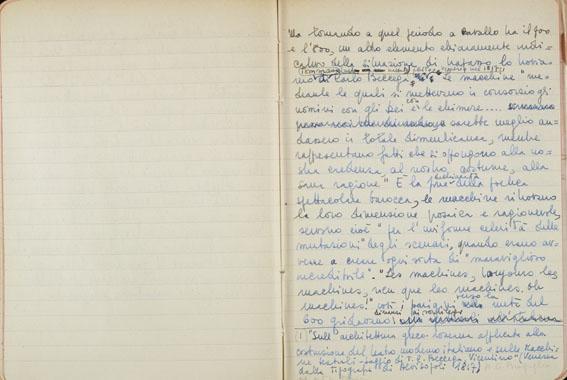 Ma tornando a quel periodo a cavallo tra il 700
e l'800, un altro elemento chiaramente indi-
cativo della situazione di
mo di Carlo Beccega, le macchine "me-
diante le quali si mettevano in consorzio gli
uomini con gli Dei e le chimere....
sarebbe meglio an-
dassero in totale dimenticanza, mentre
rappresentano fatti che si oppongono alla no-
stra credenza, al nostro costume, alla
sana ragione." È la fine della poetica
spettacolare barocca, le macchine ritrovano
la loro dimensione prosaica e ragionevole,
servono cioè "per l'uniforme celerità delle
mutazioni" degli scenari, quando erano av-
vezze a creare ogni sorta di "meraviglioso
incredibile". "Les machines, toujours les
machines, rien que les machines. Oh
machines!" così i parigini verso la metà del
600 gridavano!
(1) "Sull'architettura greco-romana applicata alla
costruzione del teatro moderno italiano e sulle Macchi-
ne teatrali - saggio di T. C. Beccega, Vicentino" (Venezia
dalla Tipografia di Alvisopoli 1817)